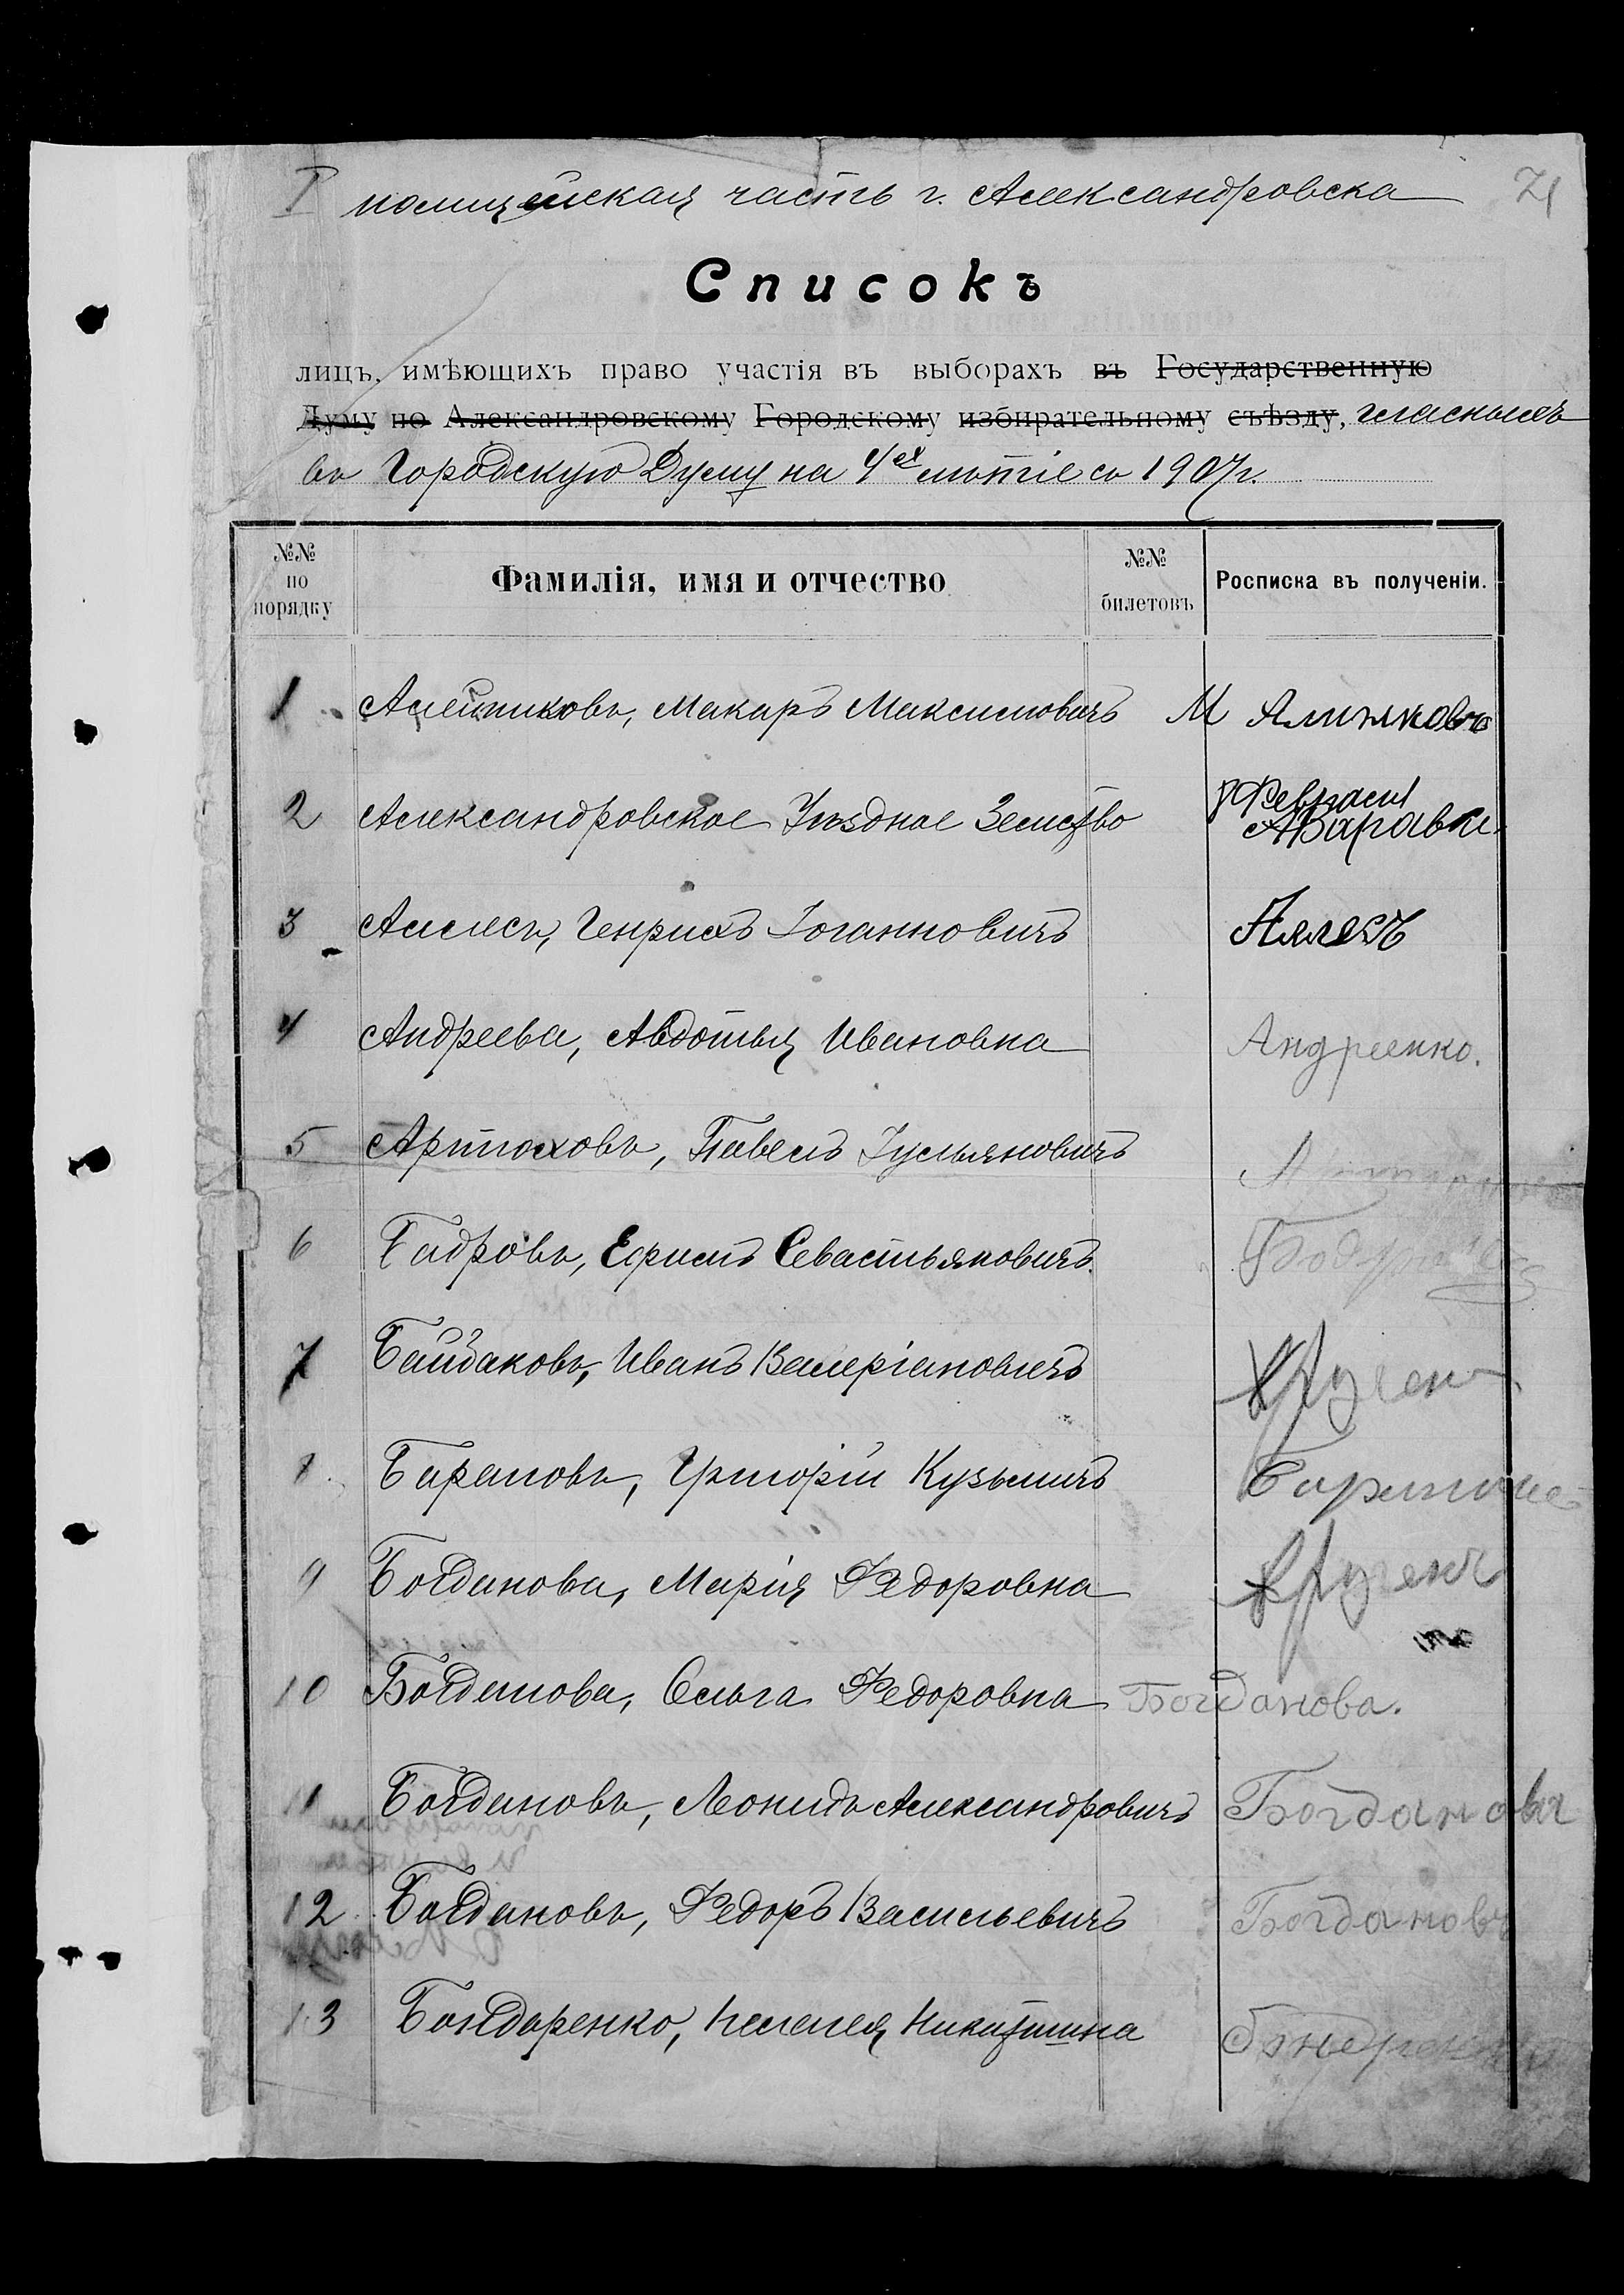 I полицейская часть г. Александровска
Списокъ
лицъ, имѣющихъ право участія въ выборахъ въ Государственную
Думу по Александровскому Городскому избирательному съѣзду, гласныхъ
въ Городскую Думу на 4ех лѣтіе съ 1907 г.
№№ по порядку Фамилія, имя и отчество №№ билетовъ Росписка въ полученіи.
1 Алейниковъ, Макаръ Максимовичъ М Алиниковъ
2 Александровское Уѣздное Земство
3 Аллесъ, Генрихъ Іоганновичъ
4 Андреева, Авдотья Ивановна Андреенко.
5 Артюховъ, Павелъ Іульяновичъ
6 Бадровъ, Ефимъ Севастьяновичъ
7 Байдаковъ, Иванъ Валеріановичъ
8 Барановъ, Григорій Кузьмичъ
9 Богданова, Марія Федоровна
10 Богданова, Ольга Федоровна Богданова.
11 Богдановъ, Леонидъ Александровичъ Богдановъ
12 Богдановъ, Федоръ Васильевичъ Богдановъ
13 Бондаренко, Никитишна Бондаренко